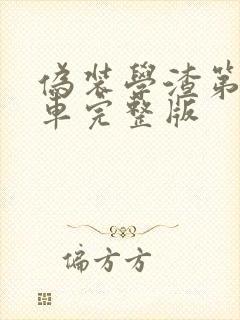 偽装學渣第
車完整版
偏方方